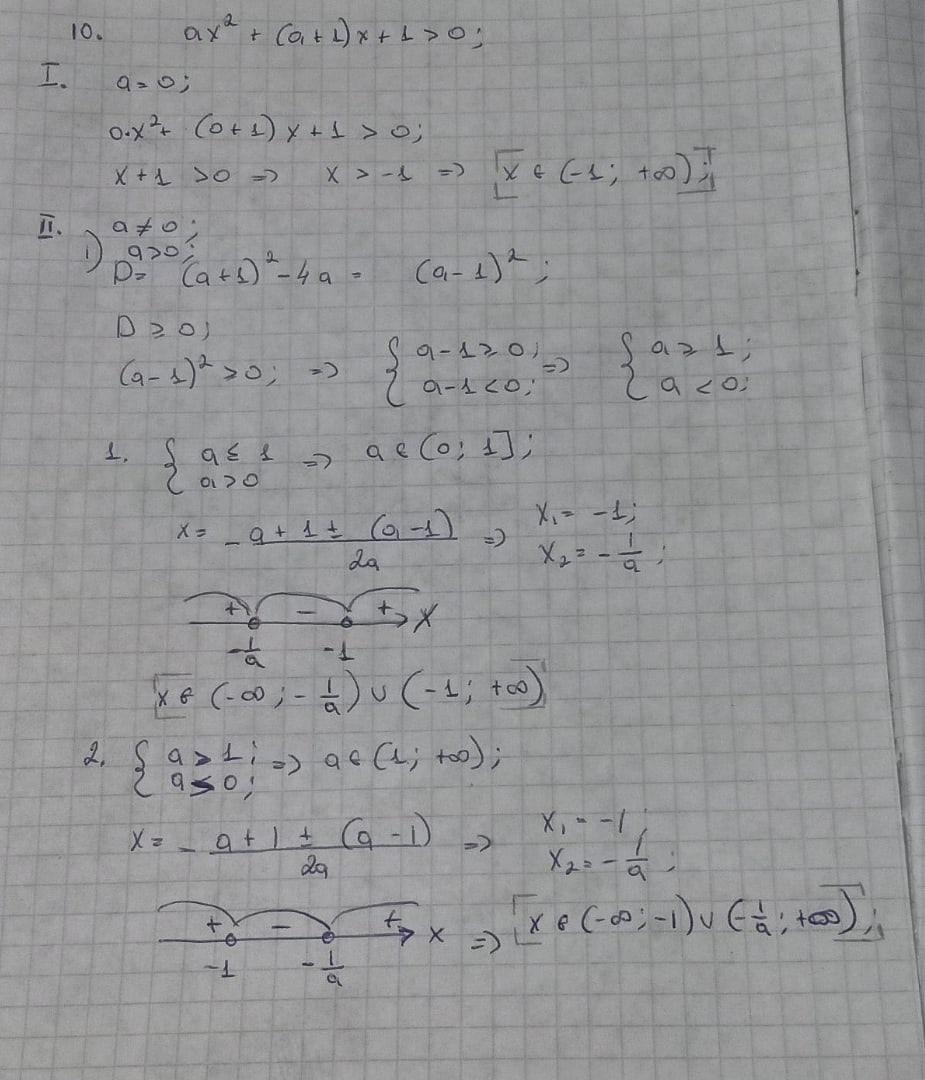 10. ax² + (a+1)x + 1 > 0;
I. a = 0;
0·x² + (0+1)x + 1 > 0;
x + 1 > 0 => x > -1 => [x ∈ (-1; +∞);]
II. a ≠ 0;
1) a > 0;
D = (a+1)² - 4a = (a-1)²;
D ≥ 0;
(a-1)² > 0; => { a-1 ≥ 0; a-1 < 0; => { a ≥ 1; a < 0;
1. { a ≤ 1 a > 0 => a ∈ (0; 1];
x = - a + 1 ± (a-1) / 2a => x₁ = -1; x₂ = - 1/a;
+ - + x
- 1/a -1
[x ∈ (-∞; - 1/a) ∪ (-1; +∞)]
2. { a > 1; a ≤ 0; => a ∈ (1; +∞);
x = - a + 1 ± (a - 1) / 2a => x₁ = -1; x₂ = - 1/a;
+ - + x => [x ∈ (-∞; -1) ∪ (- 1/a; +∞);]
-1 - 1/a